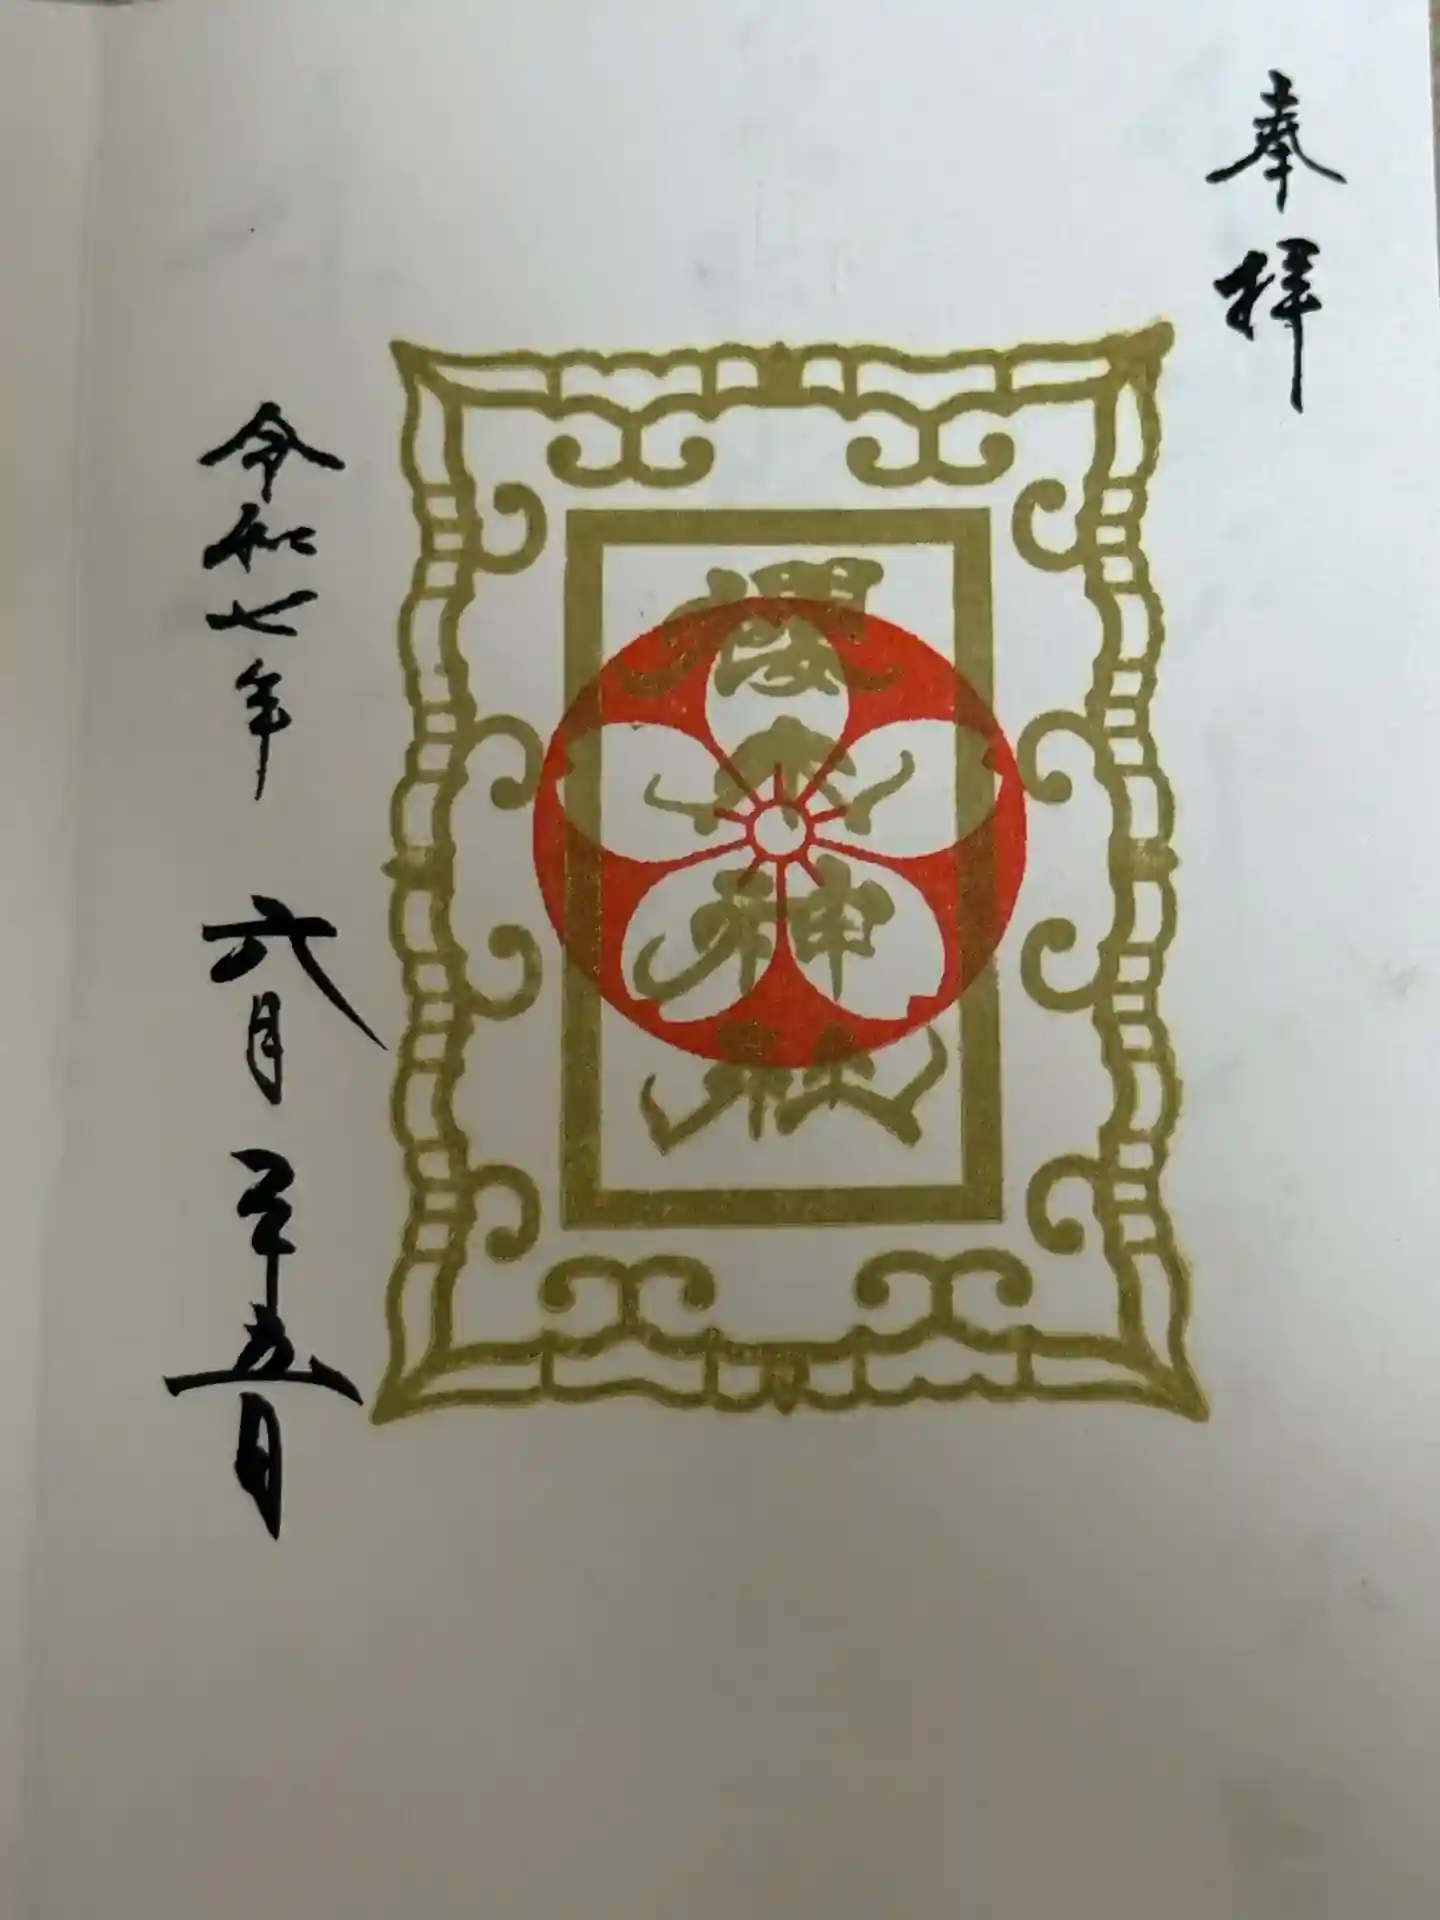 奉拝
櫻木神社
令和七年 六月 二十五日